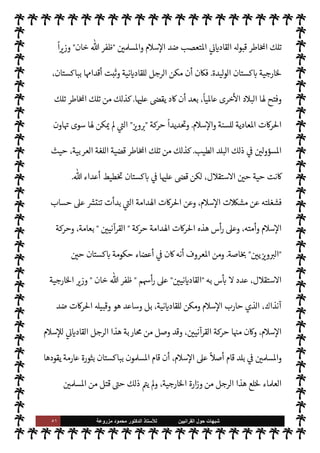 تلك المخاطر قبوله القادياني المتعصب ضد الإسلام والمسلمين "ظفر الله خان" وزيراً
لخارجية باكستان الوليدة. فكان أن مكن الرجل للقاديانية وثبت أقدامها بباكستان،
وفتح لها البلاد الأخرى عالمياً، بعد أن كاد يقضى عليها. كذلك من تلك المخاطر تلك
الحركات المعادية للسنة والإسلام. وتحديداً حركة "برويز" التي لم يمكن لها سوى تهاون
المسؤولين في ذلك البلد الطيب. كذلك من تلك المخاطر قضية اللغة العربية، حيث
كانت حية حين الاستقلال، لكن قضى عليها في باكستان تخطيط أعداء الله.
فشغلته عن مشكلات الإسلام، وعن الحركات الهدامة التي بدأت تنتشر على حساب
الإسلام وأمته، وعلى رأس هذه الحركات الهدامة حركة " القرآنيين " بعامة، وحركة
"البرويزيين" بخاصة. ومن المعروف أنه كان في أعضاء حكومة باكستان حين
الاستقلال، عدد لا بأس به "القاديانيين" على رأسهم " ظفر الله خان " وزير الخارجية
آنذاك، الذي حارب الإسلام ومكن للقاديانية، بل وساعد هو وقبيله الحركات ضد
الإسلام، وكان منها حركة القرآنيين، وقد وصل من محاربة هذا الرجل القادياني للإسلام
والمسلمين في بلد قام أصلاً على الإسلام، أن قام المسلمون بباكستان بثورة عارمة يقودها
العلماء لخلع هذا الرجل من وزارة الخارجية، ولم يتم ذلك حتى قتل من المسلمين
شبهات حول القرآنيين للأستاذ الدكتور محمود مزروعة ٥٦